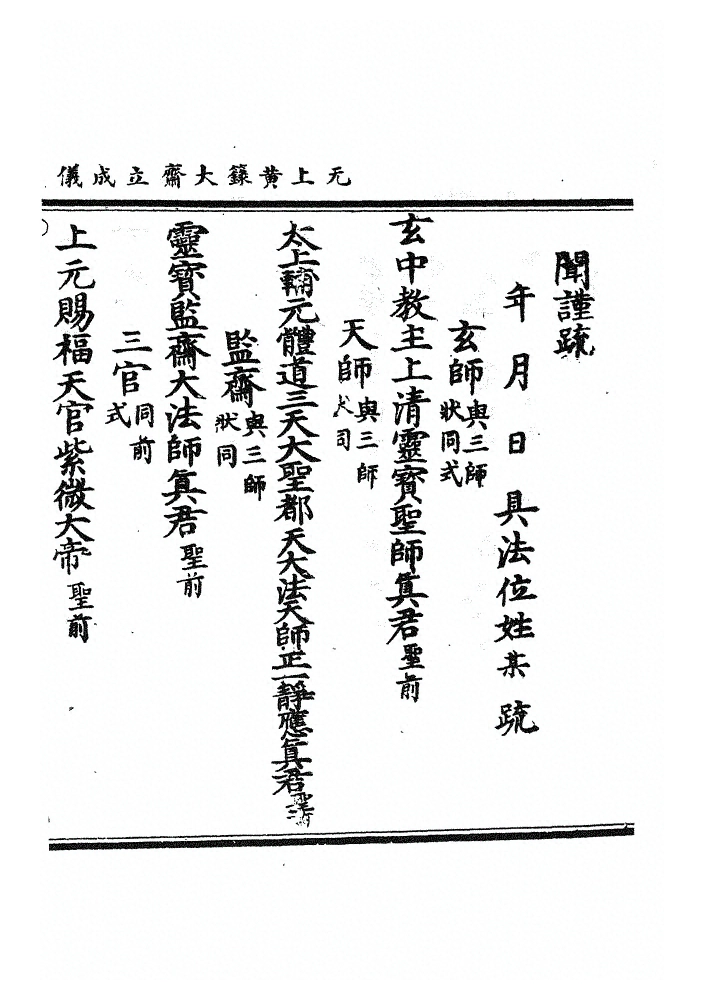 无上黄籙大齋立成儀
聞謹疏
年月日具法位姓某疏
玄師與三師狀同式
玄中教主上清靈寳聖師眞君聖前
天師與三師狀同
太上輔元體道三天大聖都天大法天師正一靜應眞君聖前
監齋與三師狀同
靈寳監齋大法師眞君聖前
三官同前式
上元賜福天官紫微大帝聖前